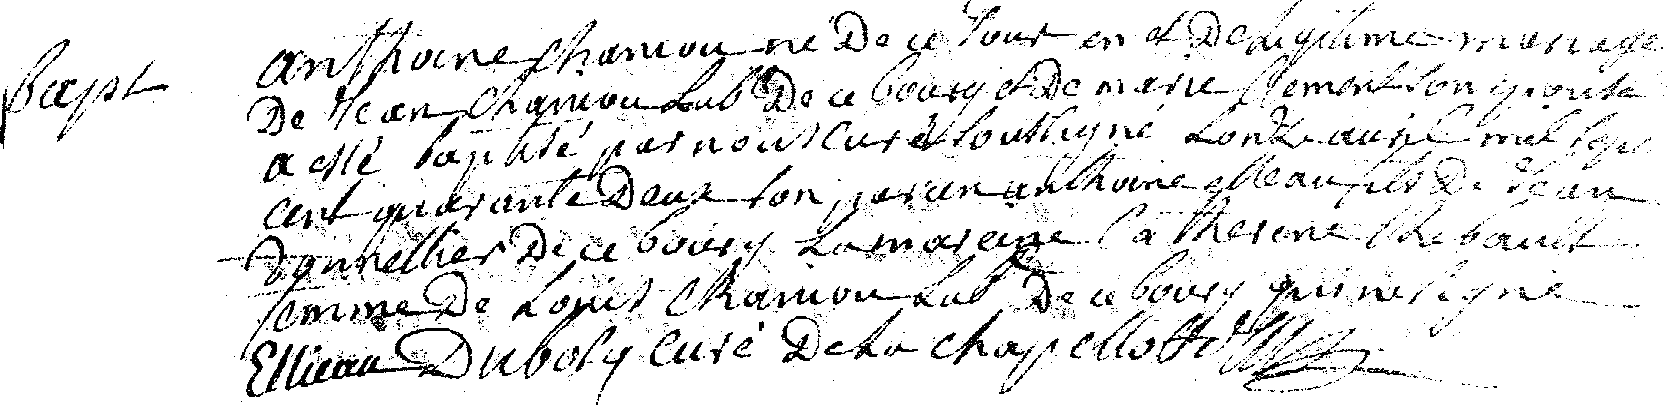 Bapt
anthoine Chamiou né De ce Jour en et De Legitime mariage
De Jean Chamiou Lab De ce bourg et De marie Clement son epouse
a esté baptisé par nous curé soussigné Lonze auril mil sept
cent quarante Deux son parein anthoine elleau fils De Jean
Tonnellier De ce bourg La mareine Catherine Thebault
femme De Louis Chamiou Lab De ce bourg qui ne signe
Ellieau Dubosq curé De La Chapellotte